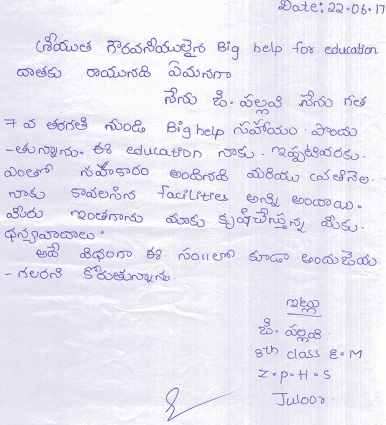 Date: 22-06-17
శ్రీయుత గౌరవనీయులైన Big help for education
దాతకు రాయునది ఏమనగా
నేను జి. పల్లవి నేను గత
7 వ తరగతి నుండి Big help సహాయం పొందు
-తున్నాను. ఈ education నాకు ఇప్పటివరకు.
ఎంతో సహకారం అందినది మరియు
నాకు కావలసిన facilities అన్ని అందాయి.
మీరు ఇంతగాను మాకు కృషిచేస్తున్న మీకు.
ధన్యవాదాలు.
అదే విధంగా ఈ సం॥లో కూడా అందజేయ
- గలరని కోరుతున్నాను.
ఇట్లు
జి. పల్లవి
8th class E.M
Z.P.H.S
Juloor